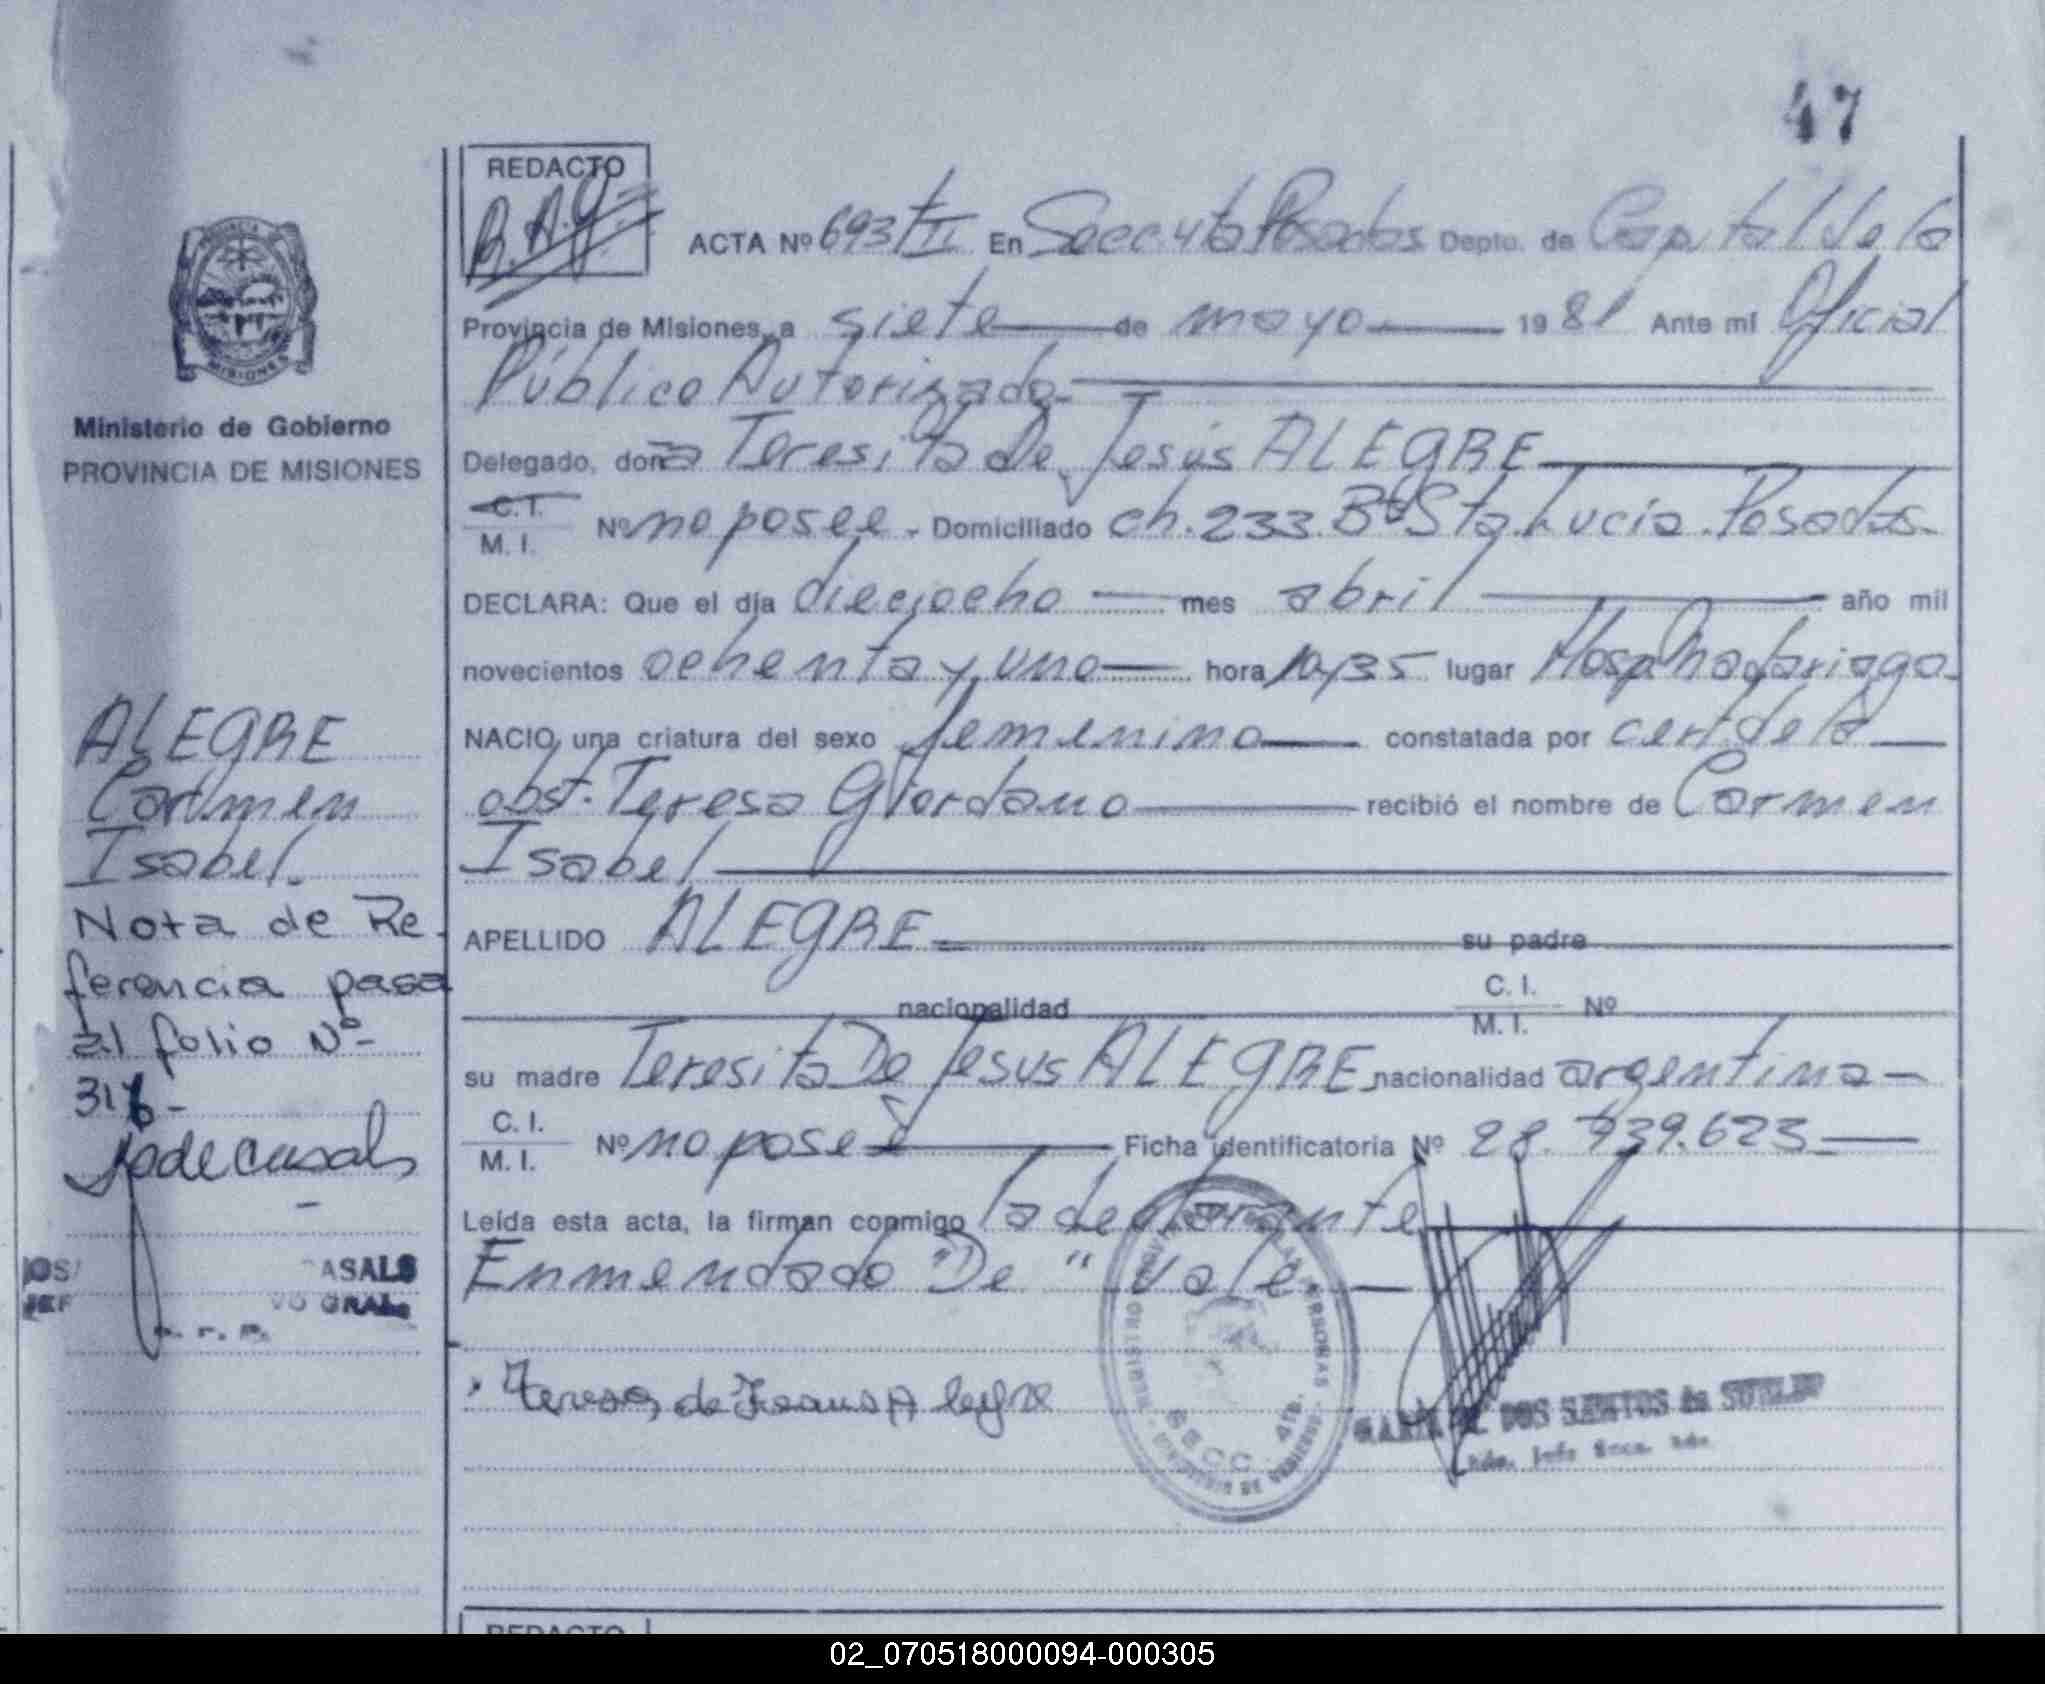 47
REDACTO
ACTA Nº 693 t II En Secc. 4ta Posadas Depto. de Capital de la
Provincia de Misiones, a siete de mayo 1981 Ante mí Oficial
Público Autorizado
Delegado, dona Teresita De Jesús ALEGRE
C.I.
M. I. Nº no posee. Domiciliado ch. 233. Bº Sta. Lucia. Posadas.
DECLARA: Que el día dieciocho mes abril año mil
novecientos ochenta y uno hora 10,35 lugar Hosp Madariaga.
NACIO una criatura del sexo femenino constatada por cert de la
obst. Teresa Giordano recibió el nombre de Carmen
Isabel
APELLIDO ALEGRE su padre
nacionalidad C. I.
M. I. Nº
su madre Teresita De Jesus ALEGRE nacionalidad argentina
C. I.
M. I. Nº no posee Ficha identificatoria Nº 28.939.623
Leída esta acta, la firman conmigo la declarante
Enmendado "De" Vale
SECC. 4TA.
DOS SANTOS de
MISIONES
Ministerio de Gobierno
PROVINCIA DE MISIONES
ALEGRE
Carmen
Isabel.
Nota de Re
ferencia pasa
al folio Nº
ASALS
GRAL.
REDACTO
02_070518000094-000305